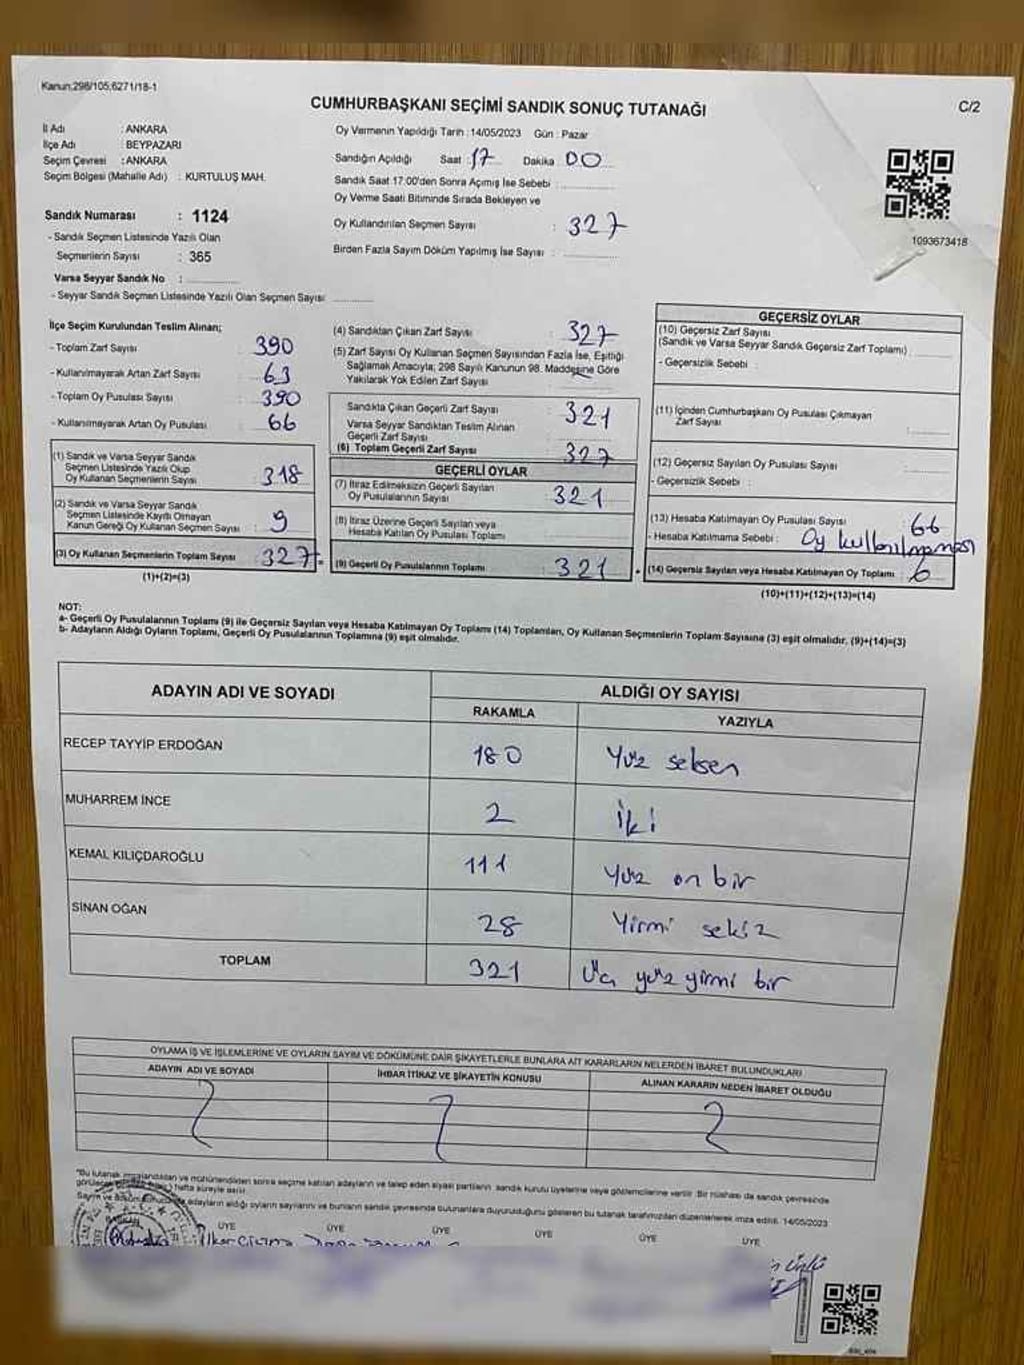 Kanun;298/105;6271/18-1
CUMHURBAŞKANI SEÇİMİ SANDIK SONUÇ TUTANAĞI
C/2
İl Adı : ANKARA
İlçe Adı : BEYPAZARI
Seçim Çevresi : ANKARA
Seçim Bölgesi (Mahalle Adı) : KURTULUŞ MAH.
Sandık Numarası : 1124
- Sandık Seçmen Listesinde Yazılı Olan
Seçmenlerin Sayısı : 365
Varsa Seyyar Sandık No :
- Seyyar Sandık Seçmen Listesinde Yazılı Olan Seçmen Sayısı
Oy Vermenin Yapıldığı Tarih : 14/05/2023 Gün : Pazar
Sandığın Açıldığı Saat : 17 Dakika : 00
Sandık Saat 17:00'den Sonra Açımış İse Sebebi :
Oy Verme Saati Bitiminde Sırada Bekleyen ve
Oy Kullandırılan Seçmen Sayısı : 327
Birden Fazla Sayım Döküm Yapılmış İse Sayısı :
1093673418
İlçe Seçim Kurulundan Teslim Alınan;
- Toplam Zarf Sayısı : 390
- Kullanılmayarak Artan Zarf Sayısı : 63
- Toplam Oy Pusulası Sayısı : 390
- Kullanılmayarak Artan Oy Pusulası : 66
(1) Sandık ve Varsa Seyyar Sandık
Seçmen Listesinde Yazılı Olup
Oy Kullanan Seçmenlerin Sayısı : 318
(2) Sandık ve Varsa Seyyar Sandık
Seçmen Listesinde Kayıtlı Olmayan
Kanun Gereği Oy Kullanan Seçmen Sayısı : 9
(3) Oy Kullanan Seçmenlerin Toplam Sayısı : 327 =
(1)+(2)=(3)
(4) Sandıktan Çıkan Zarf Sayısı : 327
(5) Zarf Sayısı Oy Kullanan Seçmen Sayısından Fazla İse, Eşitliği
Sağlamak Amacıyla; 298 Sayılı Kanunun 98. Maddesine Göre
Yakılarak Yok Edilen Zarf Sayısı :
Sandıkta Çıkan Geçerli Zarf Sayısı : 321
Varsa Seyyar Sandıktan Teslim Alınan
Geçerli Zarf Sayısı :
(6) Toplam Geçerli Zarf Sayısı : 327
GEÇERLİ OYLAR
(7) İtiraz Edilmeksizin Geçerli Sayılan
Oy Pusulalarının Sayısı : 321
(8) İtiraz Üzerine Geçerli Sayılan veya
Hesaba Katılan Oy Pusulası Toplamı :
(9) Geçerli Oy Pusulalarının Toplamı : 321 +
GEÇERSİZ OYLAR
(10) Geçersiz Zarf Sayısı
(Sandık ve Varsa Seyyar Sandık Geçersiz Zarf Toplamı) :
- Geçersizlik Sebebi :
(11) İçinden Cumhurbaşkanı Oy Pusulası Çıkmayan
Zarf Sayısı :
(12) Geçersiz Sayılan Oy Pusulası Sayısı :
- Geçersizlik Sebebi :
(13) Hesaba Katılmayan Oy Pusulası Sayısı : 66
- Hesaba Katılmama Sebebi : Oy kullanılmaması
(14) Geçersiz Sayılan veya Hesaba Katılmayan Oy Toplamı : 6
(10)+(11)+(12)+(13)=(14)
NOT:
a- Geçerli Oy Pusulalarının Toplamı (9) ile Geçersiz Sayılan veya Hesaba Katılmayan Oy Toplamı (14) Toplamları, Oy Kullanan Seçmenlerin Toplam Sayısına (3) eşit olmalıdır. (9)+(14)=(3)
b- Adayların Aldığı Oyların Toplamı, Geçerli Oy Pusulalarının Toplamına (9) eşit olmalıdır.
ADAYIN ADI VE SOYADI ALDIĞI OY SAYISI
RAKAMLA YAZIYLA
RECEP TAYYİP ERDOĞAN 180 Yüz seksen
MUHARREM İNCE 2 İki
KEMAL KILIÇDAROĞLU 111 Yüz on bir
SİNAN OĞAN 28 Yirmi sekiz
TOPLAM 321 Üç yüz yirmi bir
OYLAMA İŞ VE İŞLEMLERİNE VE OYLARIN SAYIM VE DÖKÜMÜNE DAİR ŞİKAYETLERLE BUNLARA AİT KARARLARIN NELERDEN İBARET BULUNDUKLARI
ADAYIN ADI VE SOYADI İHBAR İTİRAZ VE ŞİKAYETİN KONUSU ALINAN KARARIN NEDEN İBARET OLDUĞU
"Bu tutanak imzalandıktan ve mühürlendikten sonra seçime katılan adayların ve talep eden siyasi partilerin sandık kurulu üyelerine veya gözlemcilerine verilir. Bir nüshası da sandık çevresinde
hafta süreyle asılır.
Sayım ve adayların aldığı oyların sayılarını ve bunların sandık çevresinde bulunanlara duyurulduğunu gösteren bu tutanak tarafımızdan düzenlenerek imza edildi. 14/05/2023
ÜYE ÜYE ÜYE ÜYE ÜYE ÜYE